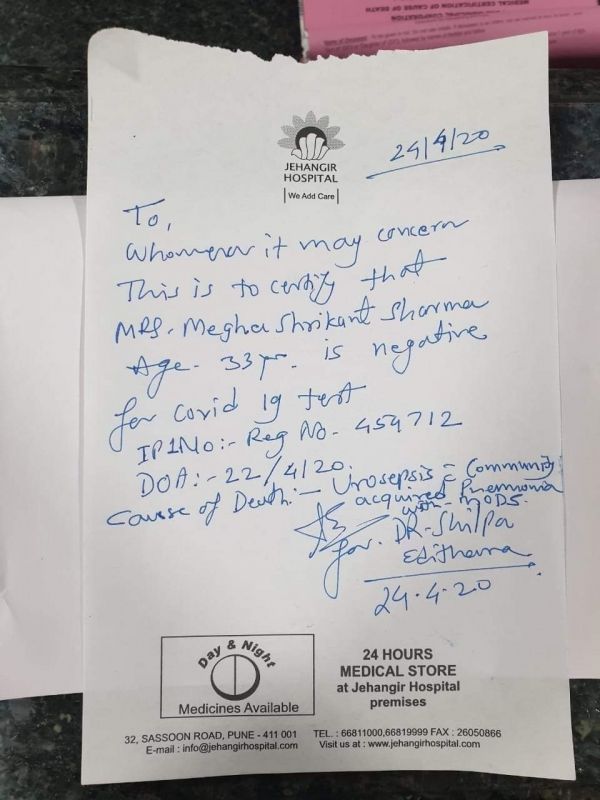 MEDICAL CERTIFICATION OF CAUSE OF DEATH
MUNICIPAL CORPORATION
JEHANGIR
HOSPITAL
We Add Care
24/4/20
To,
Whomever it may concern
This is to certify that
MRS. Megha Shrikant Sharma
Age - 33 yr. is negative
for covid 19 test
IP1No:- Reg No. 454712
DOA:- 22/4/20.
Causse of Death:- Urosepsis = Community
acquired Pnemonia
with - MODS.
for. DR. Shilpa
24.4.20
Day & Night
Medicines Available
24 HOURS
MEDICAL STORE
at Jehangir Hospital
premises
32, SASSOON ROAD, PUNE - 411 001 TEL. : 66811000,66819999 FAX : 26050866
E-mail : info@jehangirhospital.com Visit us at : www.jehangirhospital.com